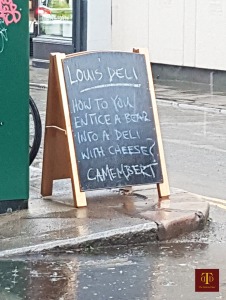 LOUIS' DELI
HOW TO YOU
ENTICE A BEAR
INTO A DELI
WITH CHEESE?
CAMEMBERT